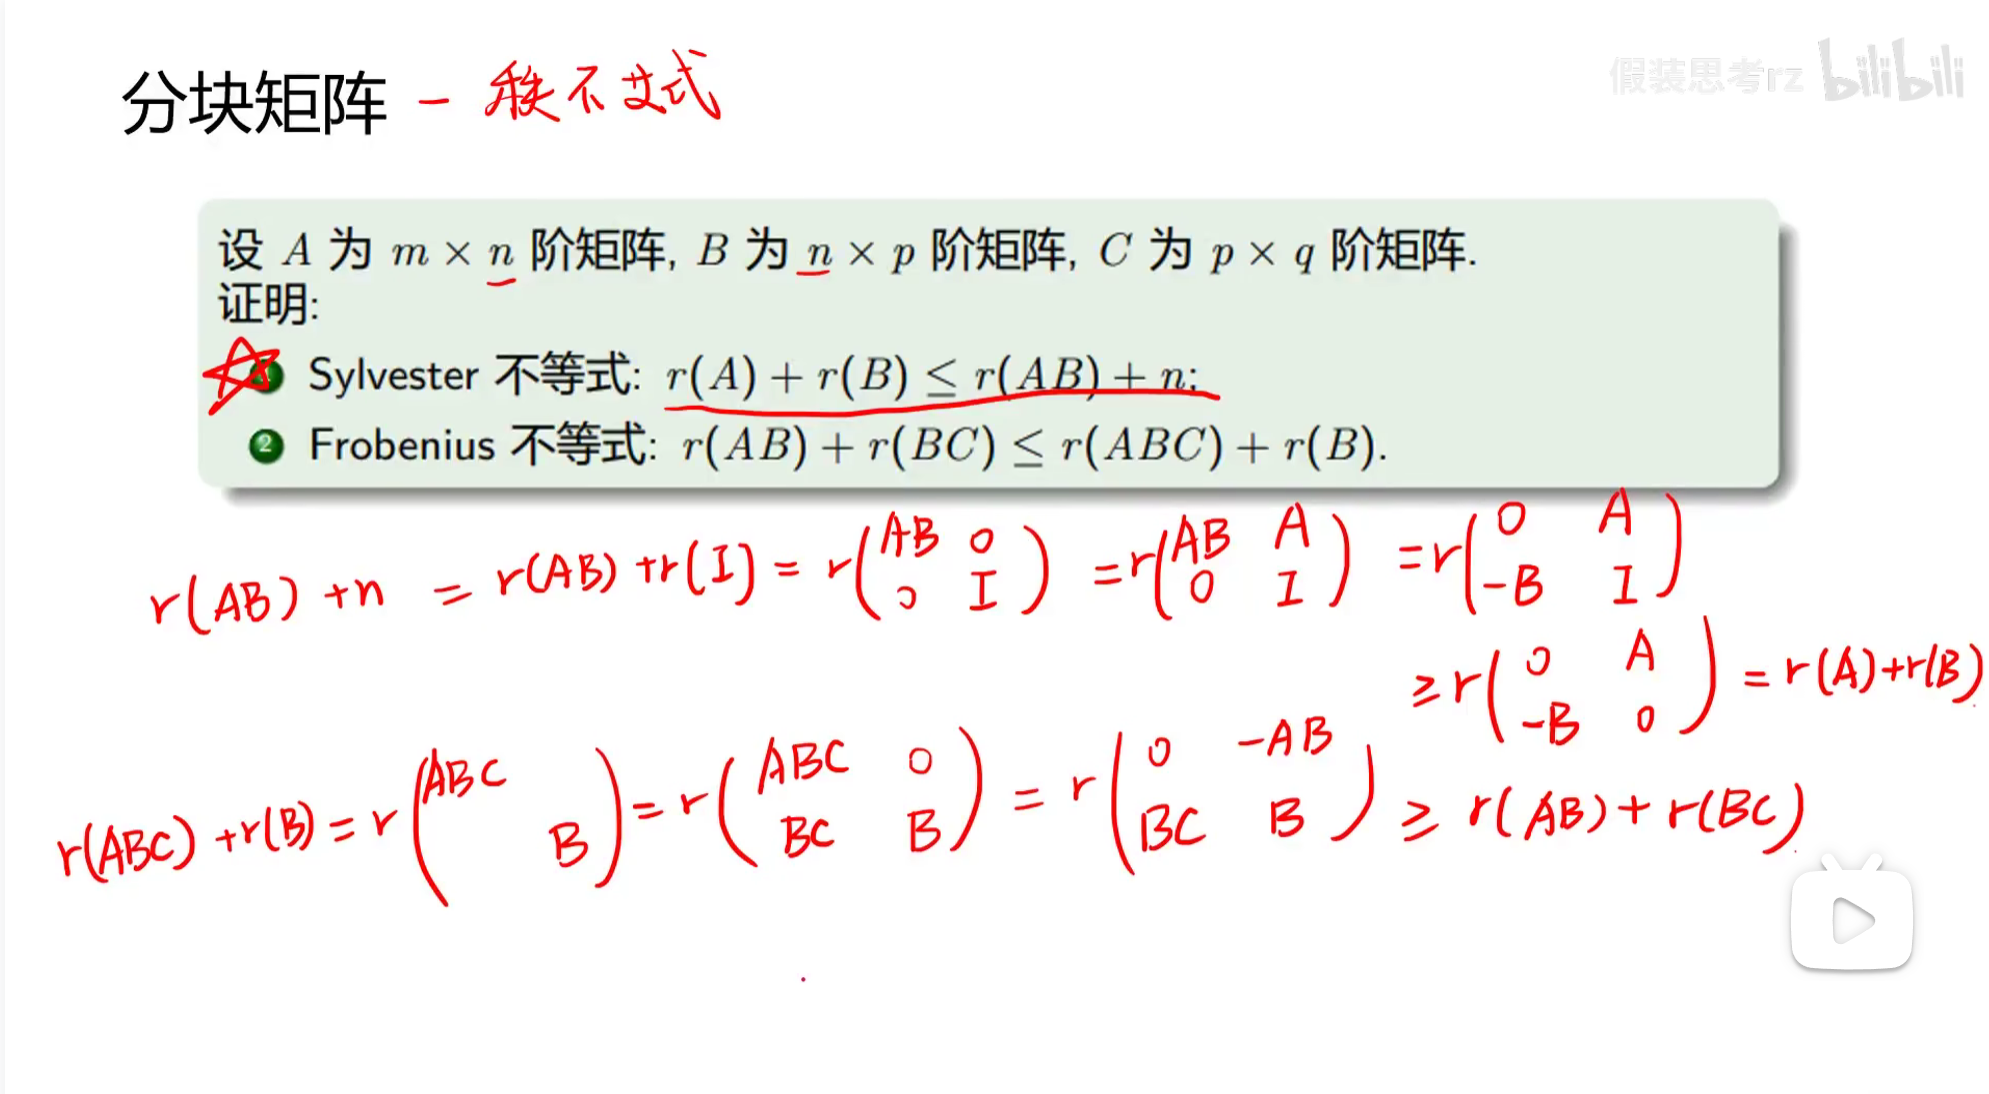 假装思考rz bilibili
分块矩阵 - 秩不等式
设 A 为 m × n 阶矩阵, B 为 n × p 阶矩阵, C 为 p × q 阶矩阵.
证明:
1 Sylvester 不等式: r(A) + r(B) ≤ r(AB) + n;
2 Frobenius 不等式: r(AB) + r(BC) ≤ r(ABC) + r(B).
r(AB) + n = r(AB) + r(I) = r(AB 0 0 I) = r(AB A 0 I) = r(0 A -B I)
≥ r(0 A -B 0) = r(A) + r(B)
r(ABC) + r(B) = r(ABC B) = r(ABC 0 BC B) = r(0 -AB BC B) ≥ r(AB) + r(BC)